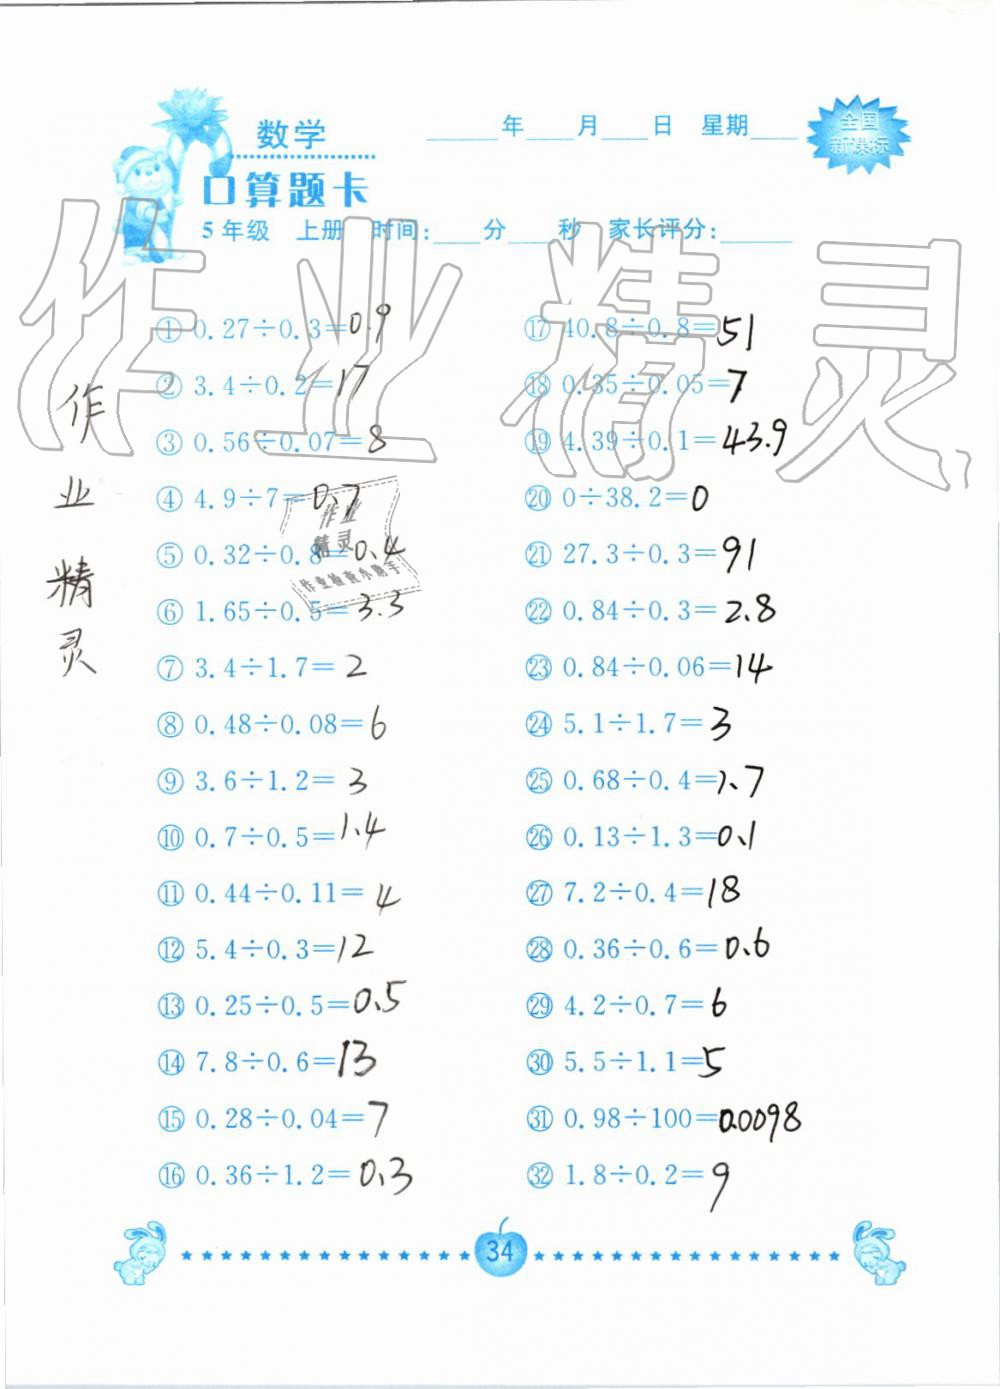 数学
____年____月____日 星期____
全国
新课标
口算题卡
5年级 上册 时间:____分____秒 家长评分:______
作业精灵
① 0.27÷0.3=0.9
② 3.4÷0.2=17
③ 0.56÷0.07=8
④ 4.9÷7=0.7
⑤ 0.32÷0.8=0.4
⑥ 1.65÷0.5=3.3
⑦ 3.4÷1.7=2
⑧ 0.48÷0.08=6
⑨ 3.6÷1.2=3
⑩ 0.7÷0.5=1.4
⑪ 0.44÷0.11=4
⑫ 5.4÷0.3=12
⑬ 0.25÷0.5=0.5
⑭ 7.8÷0.6=13
⑮ 0.28÷0.04=7
⑯ 0.36÷1.2=0.3
⑰ 40.8÷0.8=51
⑱ 0.35÷0.05=7
⑲ 4.39÷0.1=43.9
⑳ 0÷38.2=0
㉑ 27.3÷0.3=91
㉒ 0.84÷0.3=2.8
㉓ 0.84÷0.06=14
㉔ 5.1÷1.7=3
㉕ 0.68÷0.4=1.7
㉖ 0.13÷1.3=0.1
㉗ 7.2÷0.4=18
㉘ 0.36÷0.6=0.6
㉙ 4.2÷0.7=6
㉚ 5.5÷1.1=5
㉛ 0.98÷100=0.0098
㉜ 1.8÷0.2=9
作
业
精
灵
作业
精灵
作业检查小助手
34